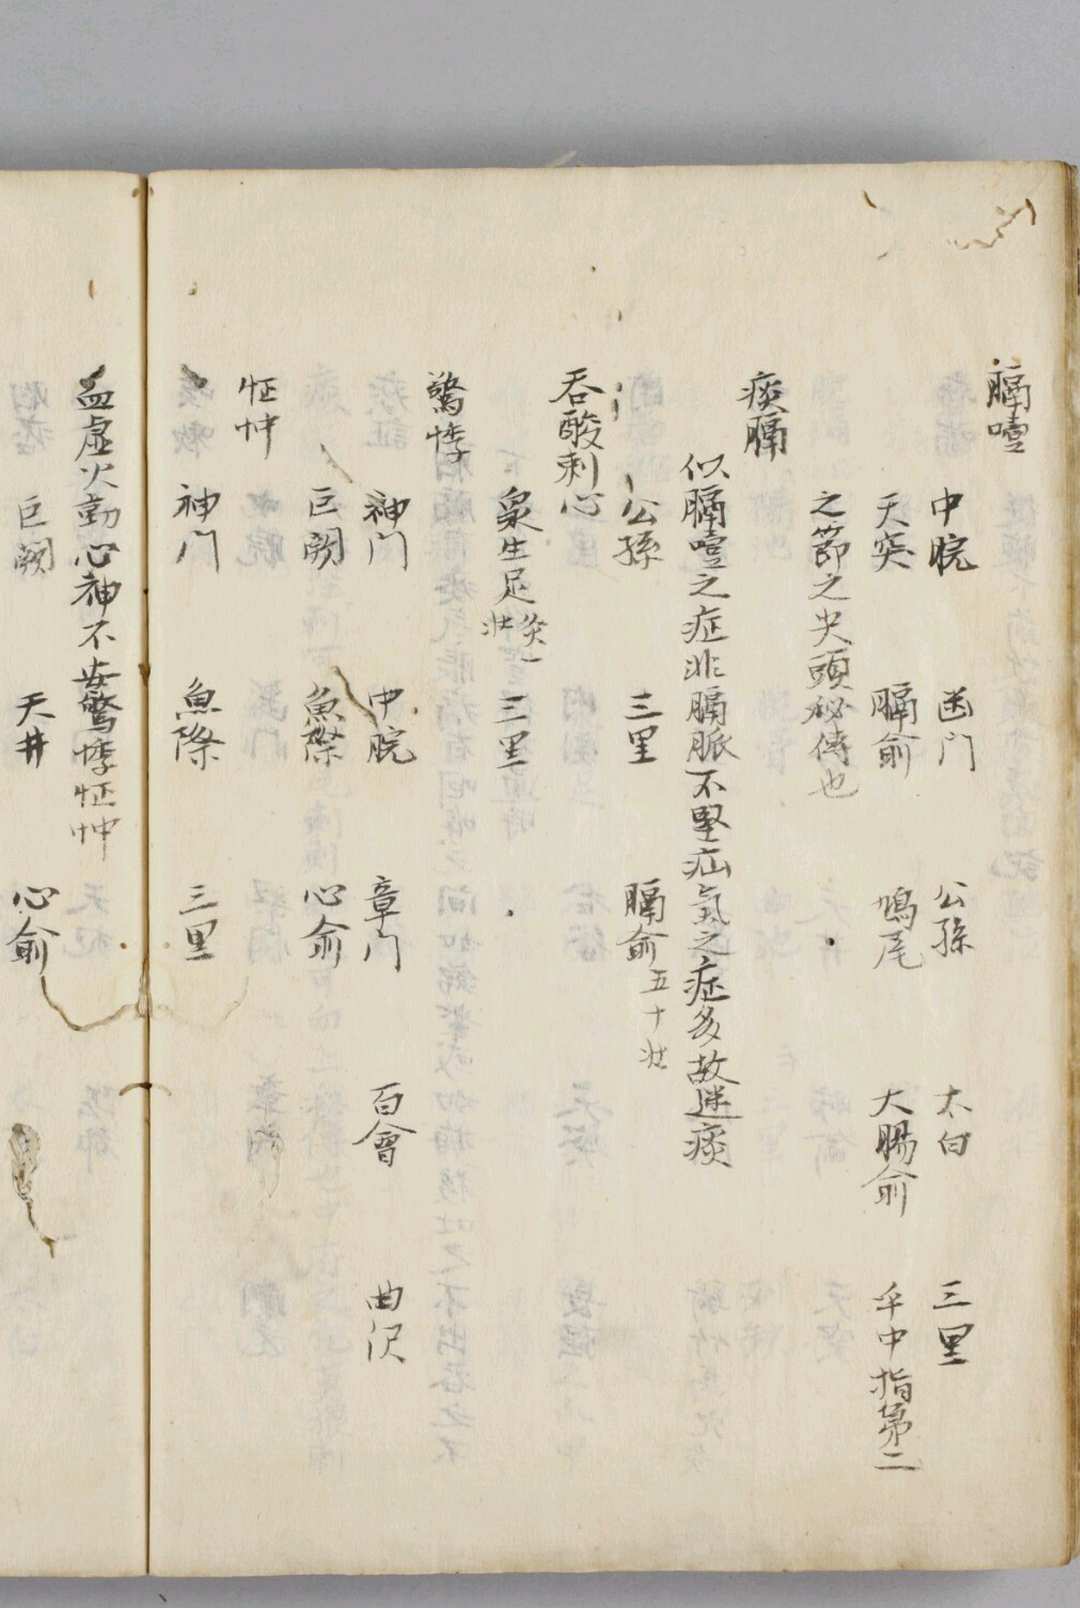 膈噎
中脘　幽門　公孫　太白　三里
天突　膈俞　鳩尾　大腸俞　手中指第二
之節之尖頭秘傳也
痰膈
似膈噎之症非膈脈不堅疝氣之症多故迷痰
公孫　三里　膈俞五十壯
吞酸刺心
泉生足灸一壯　三里
驚悸
神門　中脘　章門　百會　曲沢
巨闕　魚際　心俞
怔忡
神門　魚際　三里
血虛火動心神不安驚悸怔忡
巨闕　天井　心俞